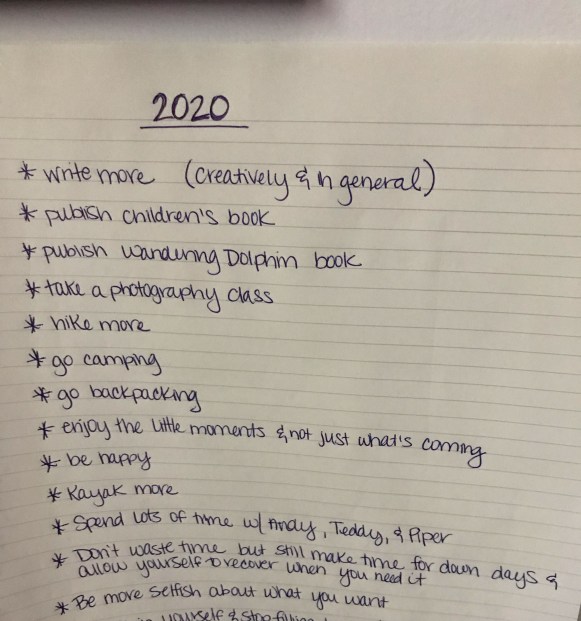 2020
* write more (creatively & in general)
* publish children's book
* publish Wandering Dolphin book
* take a photography class
* hike more
* go camping
* go backpacking
* enjoy the little moments & not just what's coming
* be happy
* Kayak more
* Spend lots of time w/ Andy, Teddy, & Piper
* Don't waste time but still make time for down days &
allow yourself to recover when you need it
* Be more selfish about what you want
yourself & stop